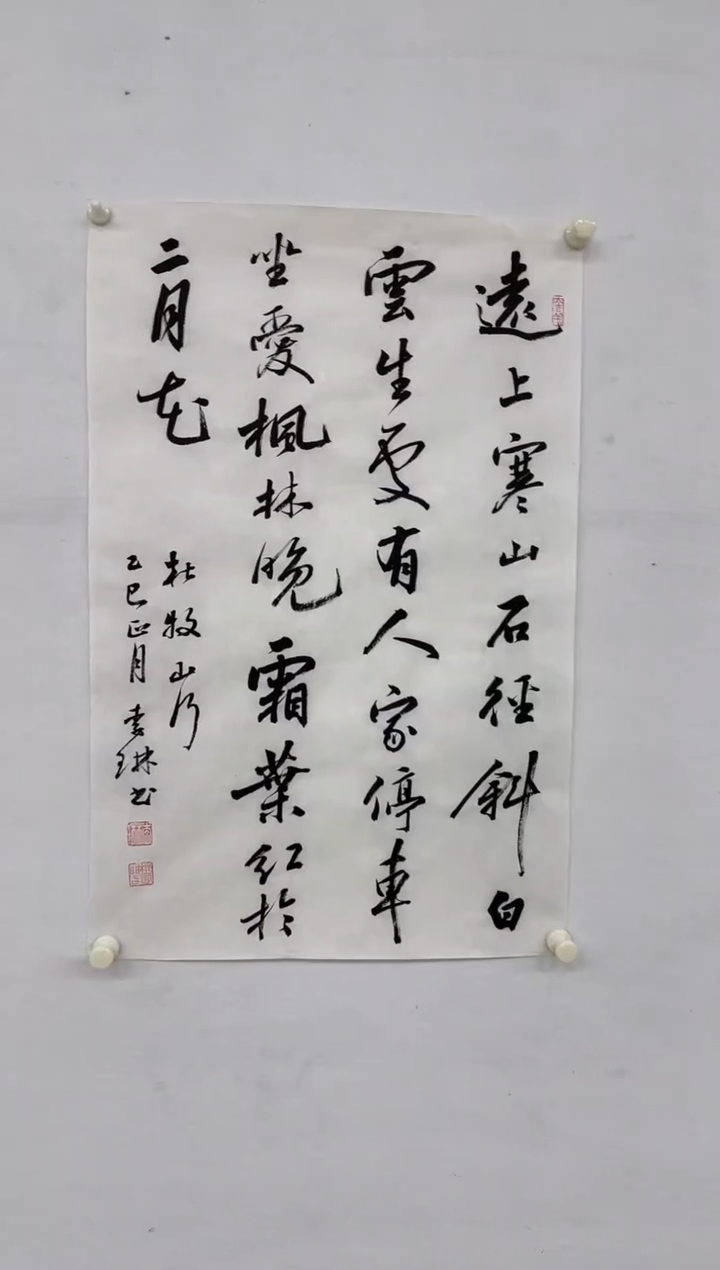 遠上寒山石徑斜白
雲生處有人家停車
坐愛楓林晚霜葉紅於
二月花
杜牧山行
乙巳正月 李琳书